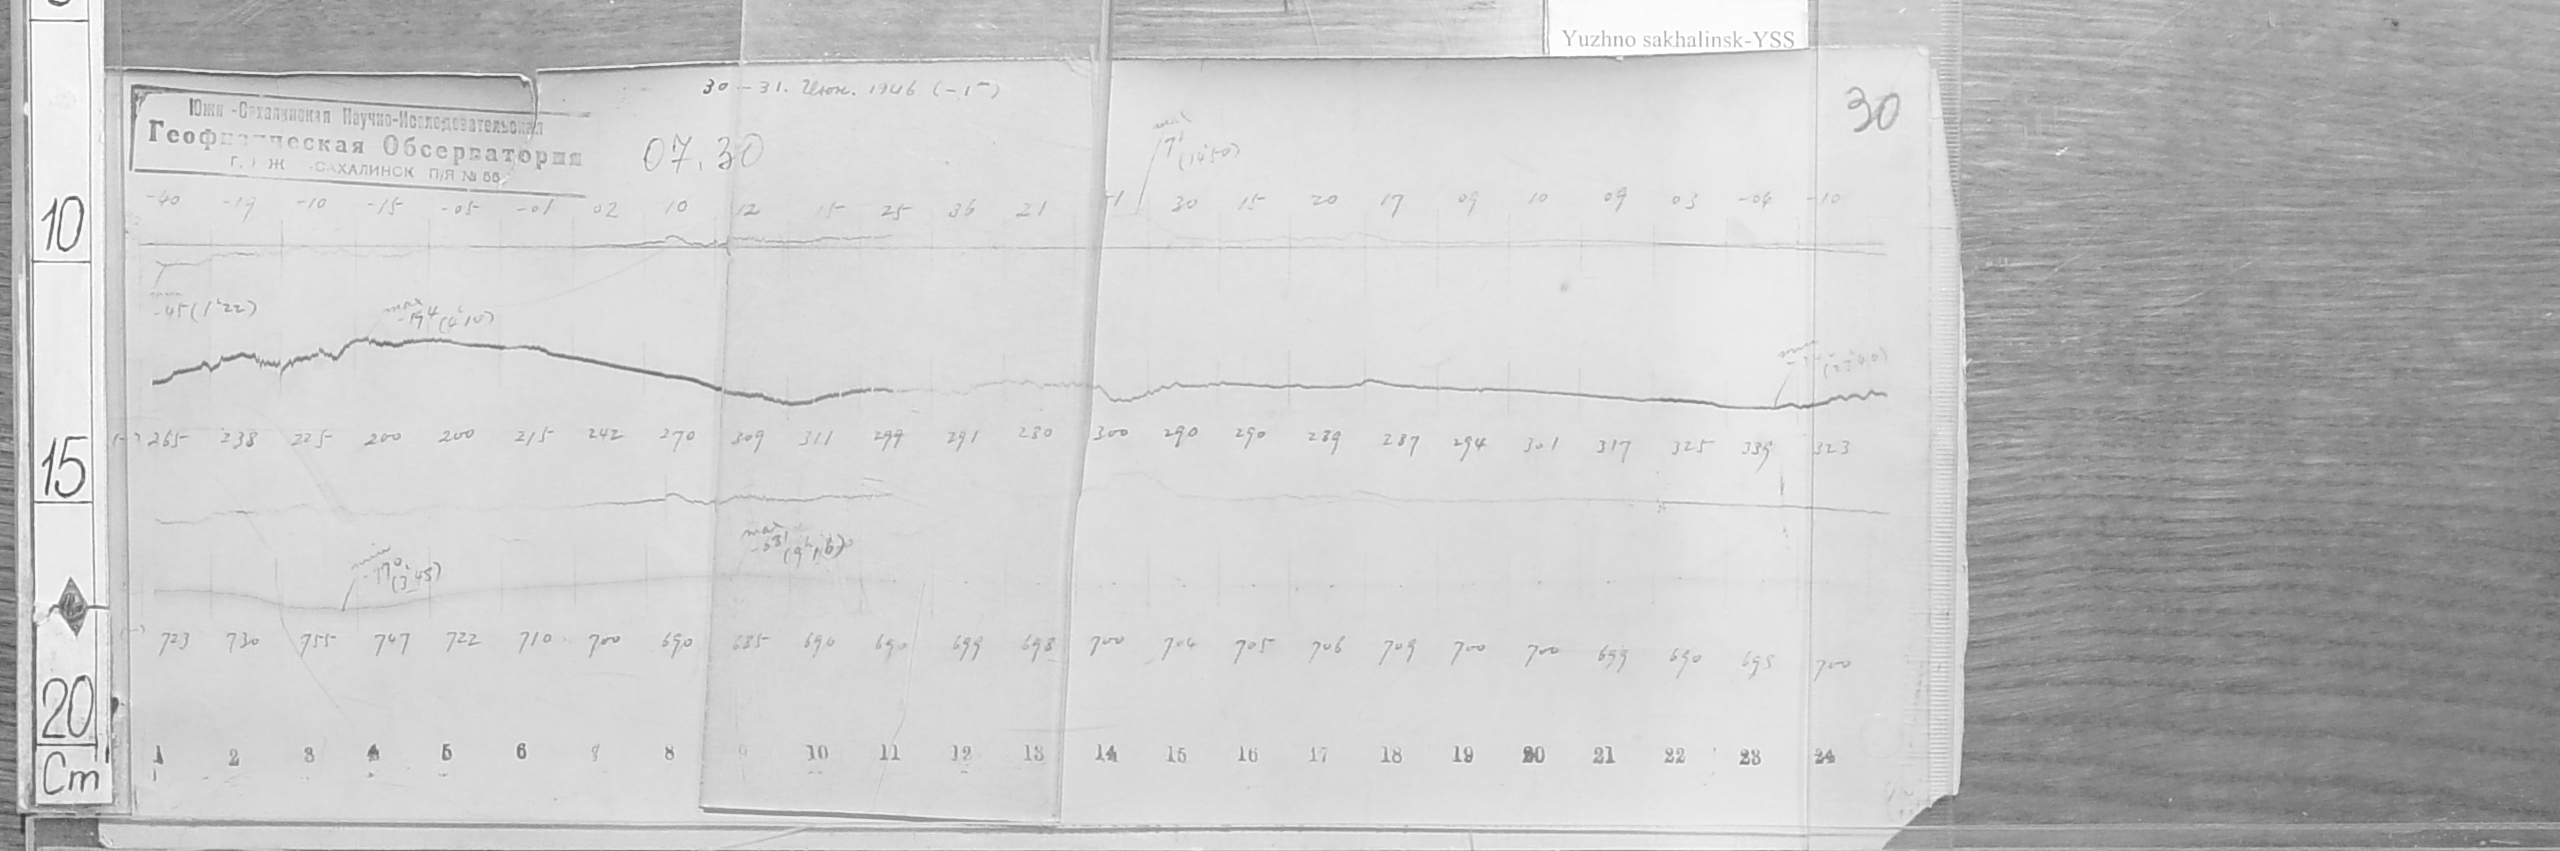 Yuzhno sakhalinsk-YSS
30-31. Июн. 1946 (-1
30
Южн -Сахалинская Научно-Исследовательская
Геофизическая Обсерватория
Г. Ю Ж -САХАЛИНСК П/Я № 55
07.30
71 (1450)
-40 -19 -10 -15 -05 -01 02 10 12 15 25 36 21 30 15 20 17 09 10 09 03 -04 -10
10
min
-45 (1 22)
max
-194 (4 10)
min
(-) 265 238 225 200 200 215 242 270 309 311 299 291 280 300 290 290 289 287 294 301 317 325 339 323
15
max
-681
min
-770 (3 45)
(-) 723 730 755 747 722 710 700 690 685 690 690 699 698 700 704 705 706 709 700 700 699 690 695 700
20
1 2 3 4 5 6 7 8 9 10 11 12 13 14 15 16 17 18 19 20 21 22 23 24
Cm